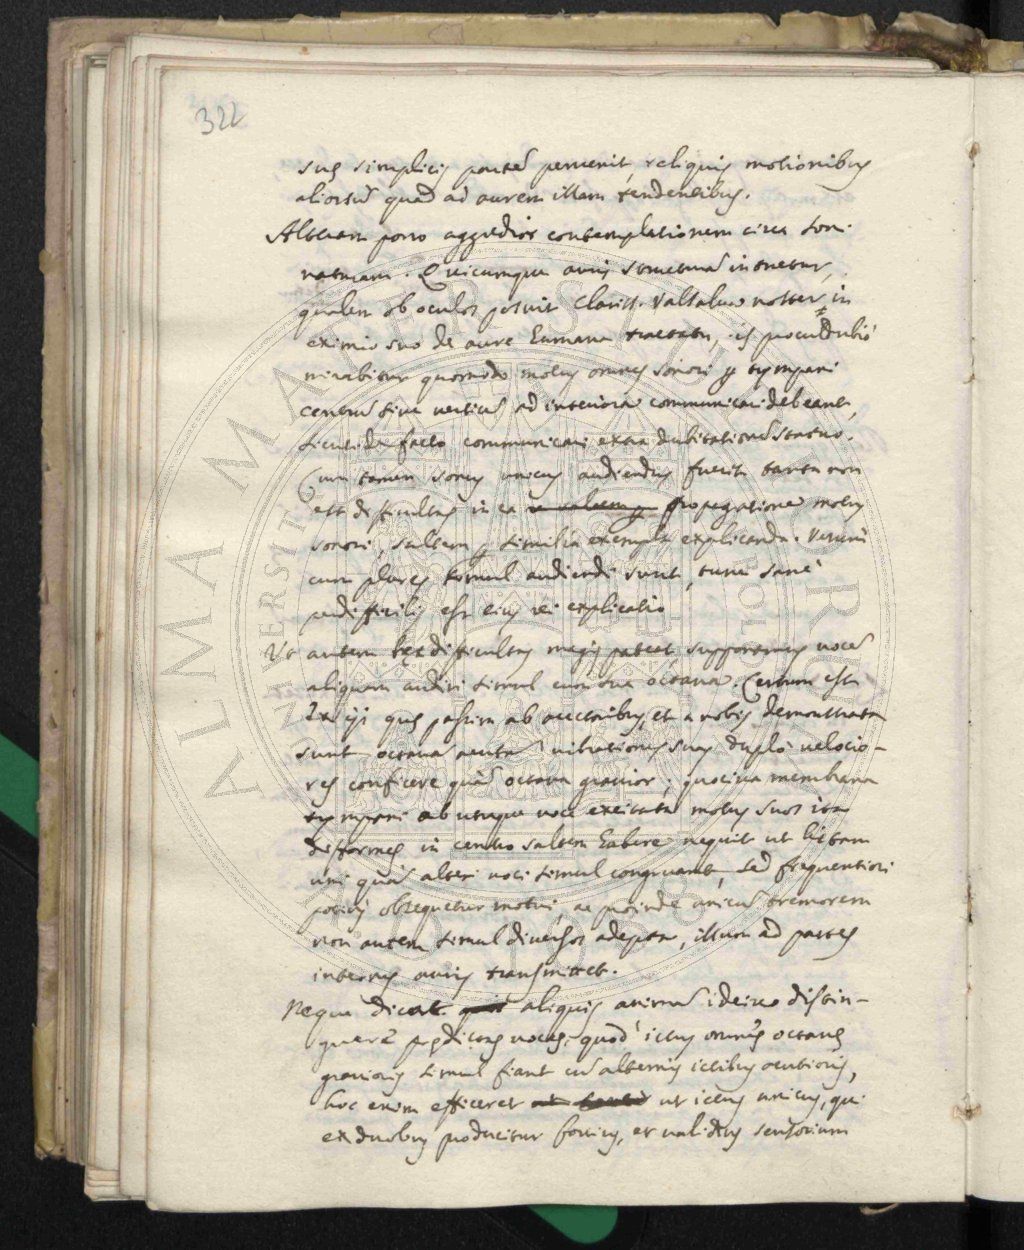 322
suę simplicis partẽ pervenit, reliquis motionibus
aliorsũ quã ad aurem illam tendentibus.
Alteram porro aggredior contemplationem circa soni
naturam. Quicumque auris structurã intuetur,
qualem ob oculos posuit Clariss. Valsalva noster in
eximio suo de aure humana tractatu, is procul dubio
mirabitur quomodo motus omnes sonori p tympani
centrũ sive verticẽ ad interiora communicari debeant,
sicuti de facto communicari extra dubitationẽ statuo.
Cum tamen sonus unicus audiendus fuerit tanta non
est difficultas in ea propagatione motus
sonori, saltem p similia exempla explicanda. Verum
cum plures simul audiendi sunt, tum sanè
perdifficilis est eius rei explicatio
Ut autem hęc difficultas magis pateat, supponamus vocẽ
aliquam audiri simul cum sua octava. Certum est
Ex iis quę passim ab auctoribus, et a nobis demonstrata
sunt octavã acutã vibrationes suas duplò velocio-
res conficere quã octava gravior; quocirca membrana
tympani ab utraque voce excitata motus suos ita
difformes in centro saltem habere nequit ut bistam
uni quã alteri voci simul congruant, sed frequentiori
potius obsequetur motui, ac proinde unicũ tremorem
non autem simul diversos adepta, illum ad partes
internas auris transmittet.
Neque dicat aliquis animũ idcirco distin-
guere prędictas voces, quod ictus omnes octavę
gravioris simul fiant cũ alternis ictibus acutioris,
hoc enim efficeret ut ictus unicus, qui
ex duobus producitur fortius, et validius sensorium